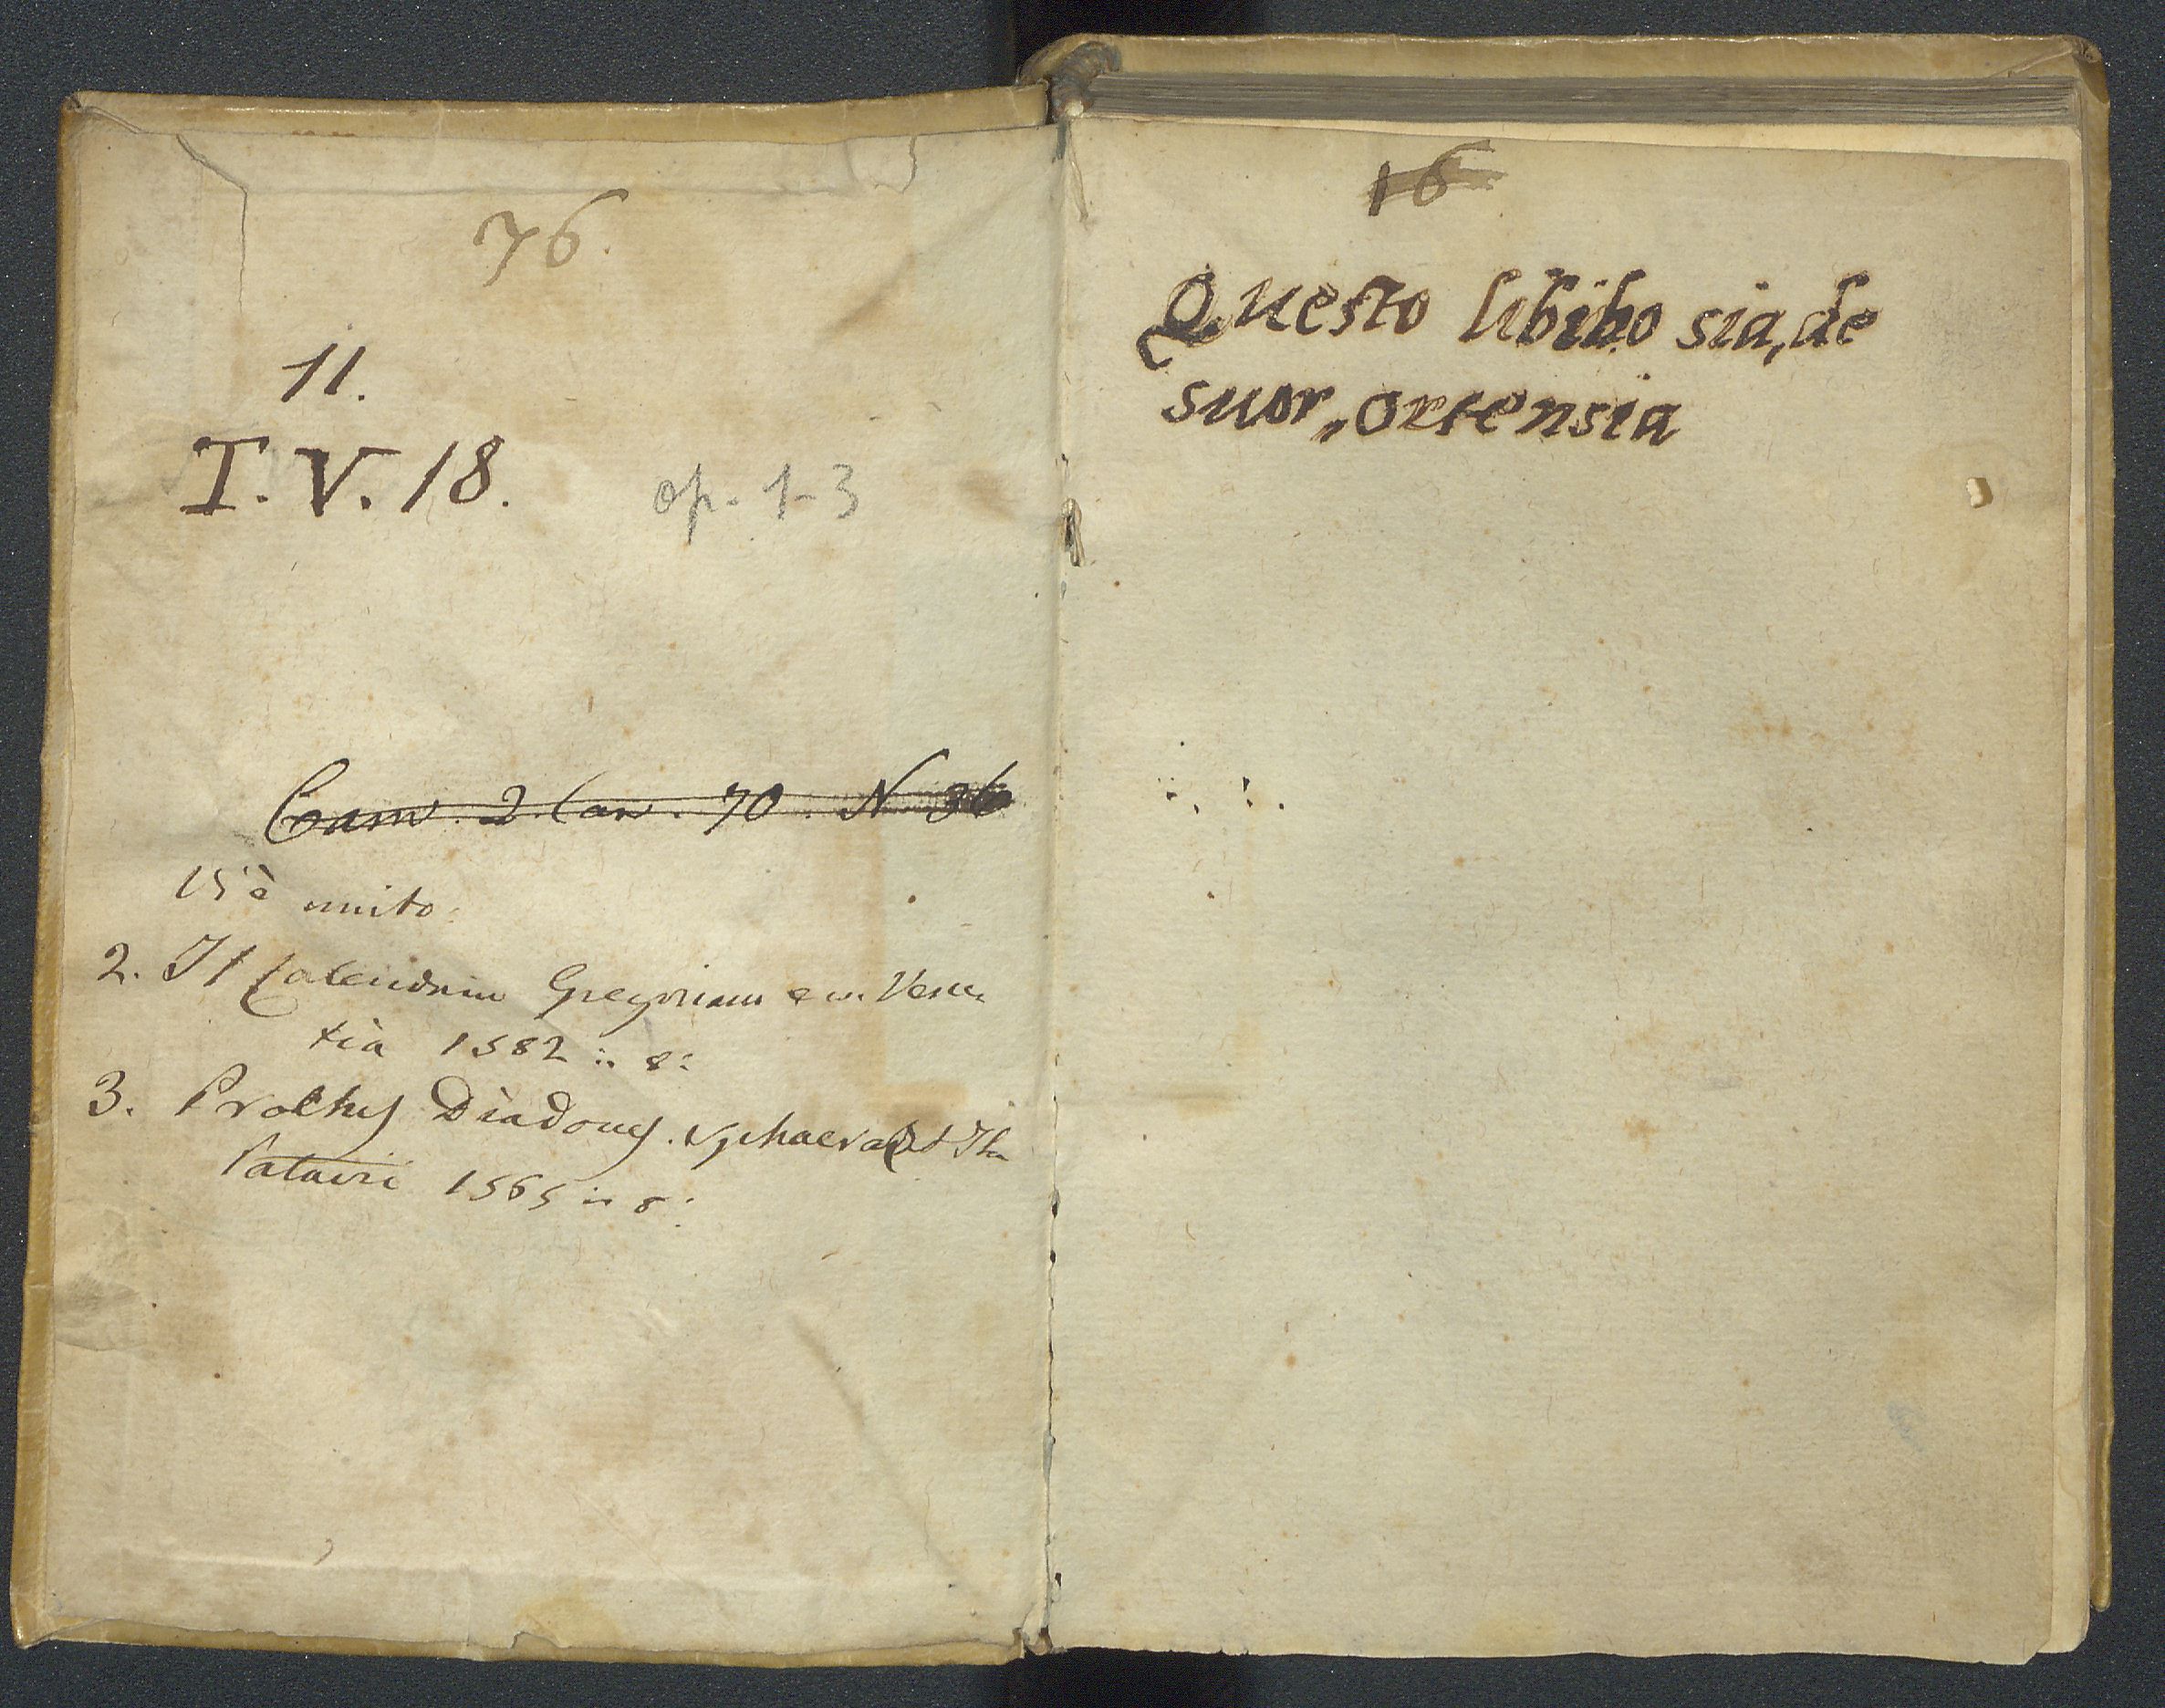 76.
11.
T. V. 18.
op. 1-3
Cam. 2. Can. 70. N 36
Vi è unito
2. Il Calendario Gregoriano Vene
tia 1582 in 8:
3. Proclus Diadous. Sphaera
Patavii 1565 in 8:
16
Questo libibo sia, de
suor, ortensia